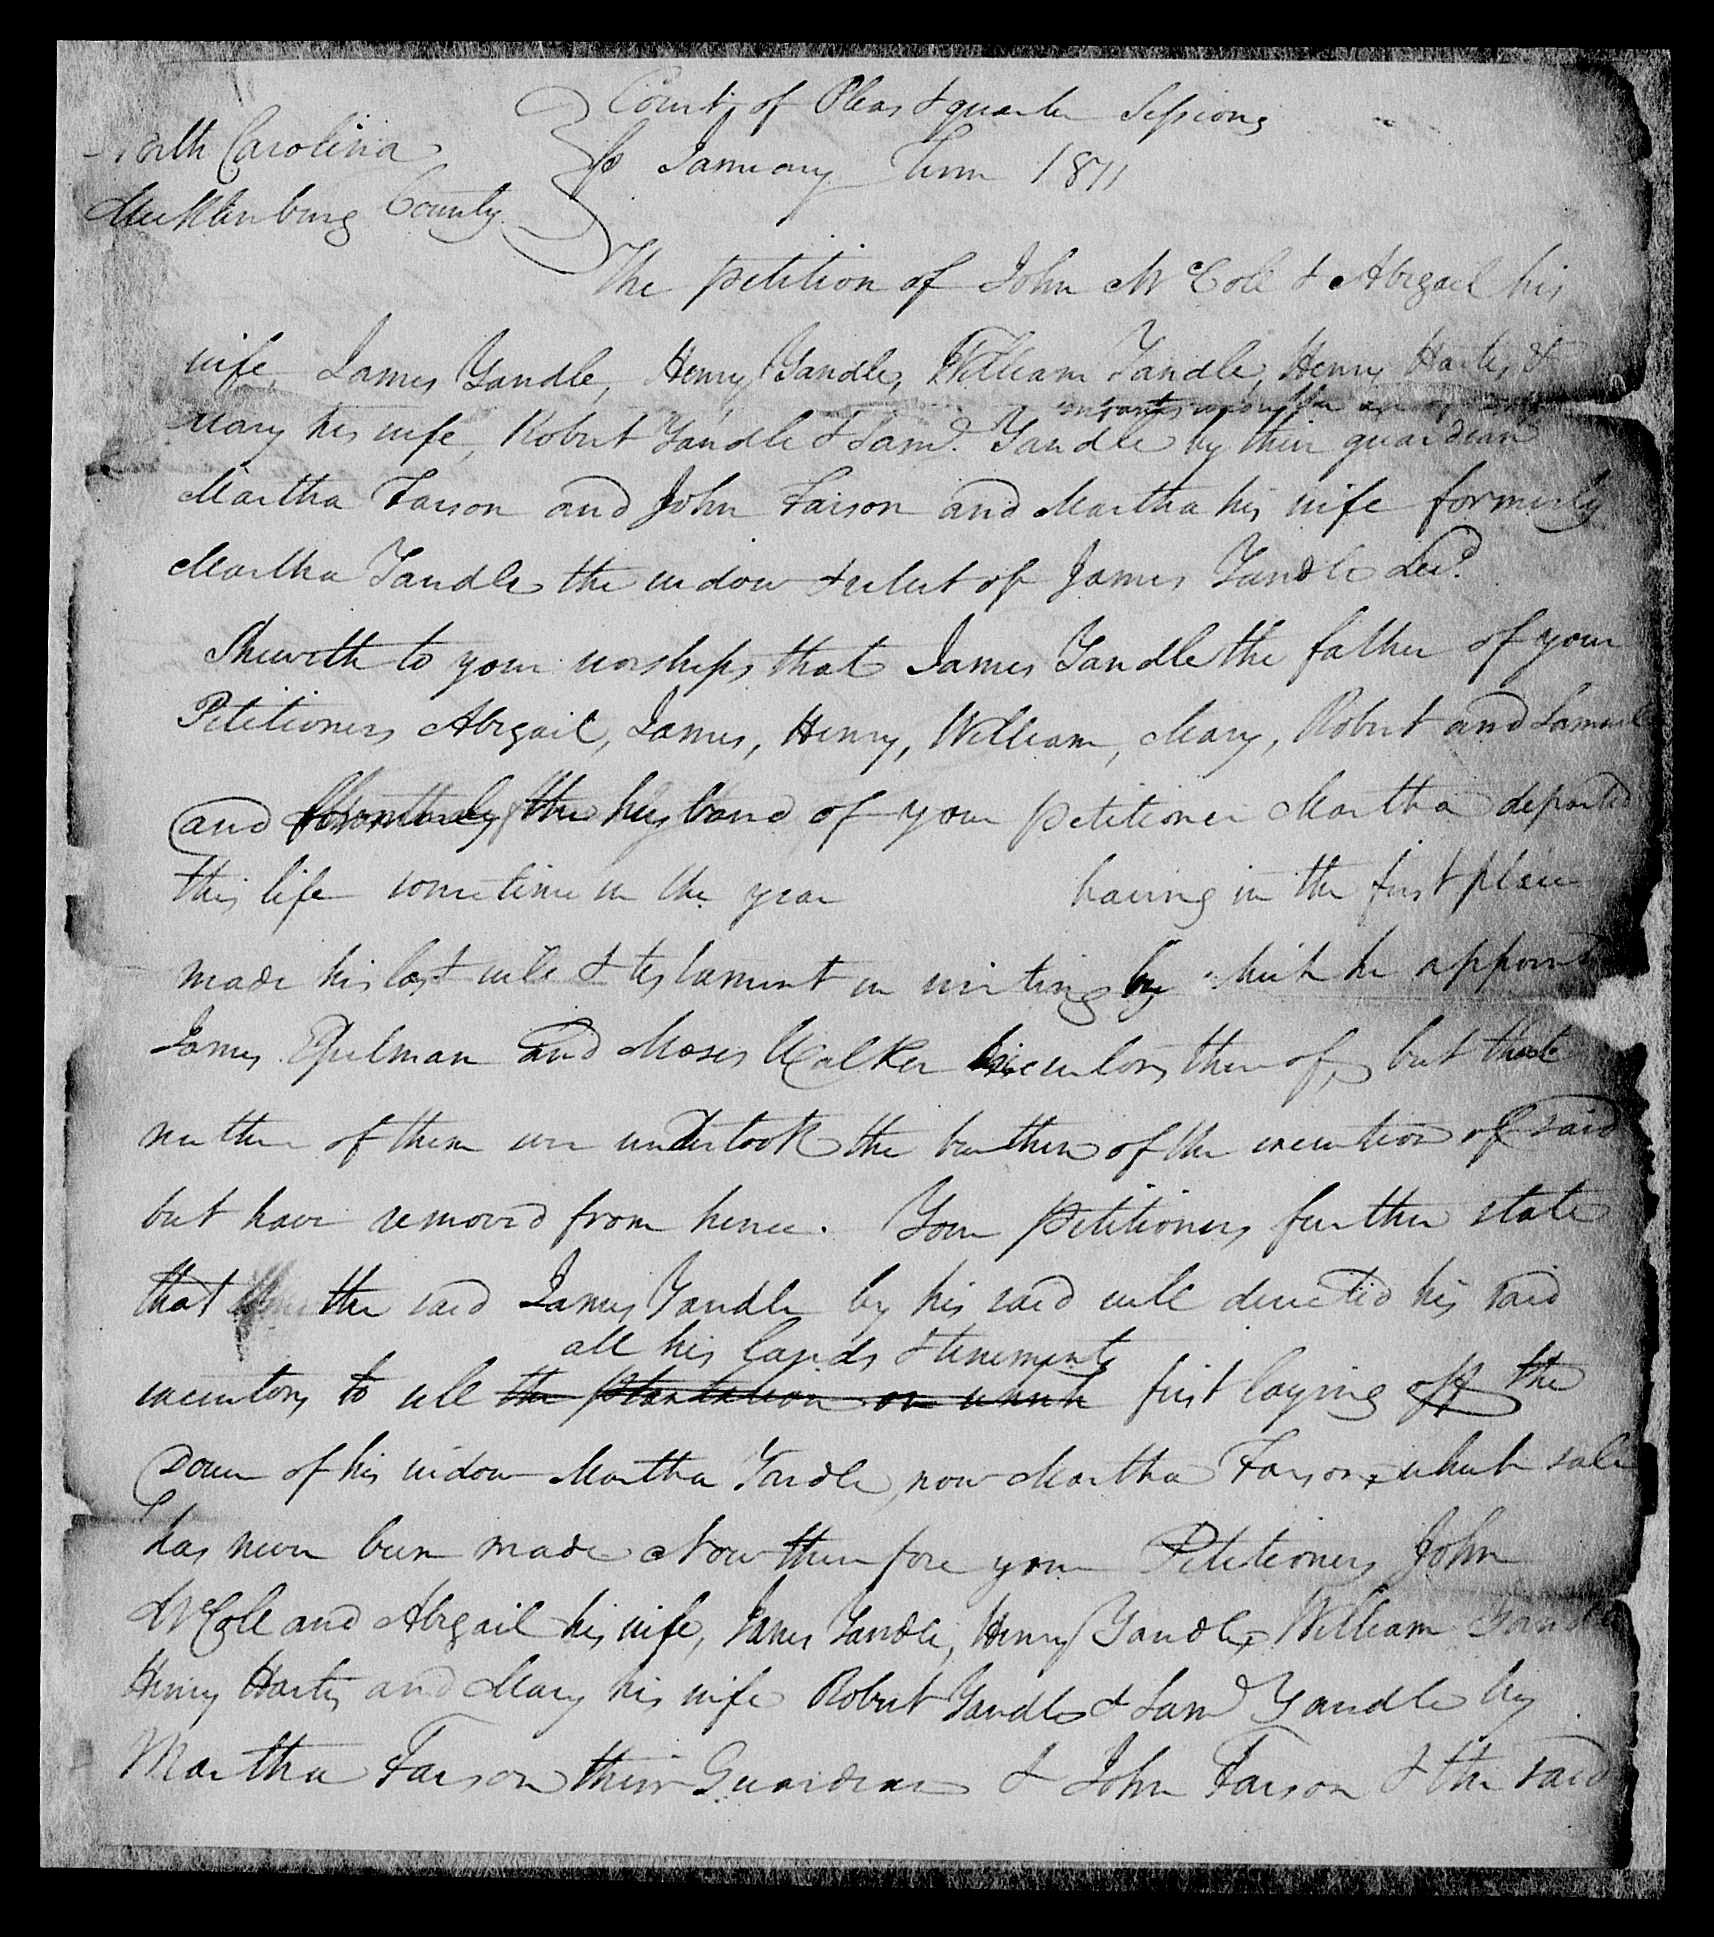 Court of Pleas & quarter Sessions
North Carolina
Mecklenburg County
January Term 1811
The petition of John McCole & Abigail his
wife, James Yandle, Henry Yandle, William Yandle, Henry Harty &
infants under the age of
Mary his wife, Robert Yandle & Saml. Yandle by their guardian
Martha Farson and John Farson and Martha his wife formerly
Martha Yandle the widow & relect of James Yandle Decd.
Sheweth to your worships that James Yandle the father of your
Petitioners Abigail, James, Henry, William, Mary, Robert and Samuel
and the husband of your petitioner Martha departed
this life sometime in the year having in the first place
made his last will & testament in writing by which he appointed
James Spilman and Moses Walker Executors thereof, but that
neither of them ever undertook the burthen of the execution of said
but have removed from hence. Your Petitioners further state
that the said James Yandle by his said will directed his said
all his lands & tenements
executors to sell the plantation on which first laying off the
Dower of his widow Martha Yandle, now Martha Farson, which sale
has never been made Now therefore your Petitioners John
McCole and Abigail his wife, James Yandle, Henry Yandle, William Yandle
Henry Harty and Mary his wife Robert Yandle & Saml Yandle by
Martha Farson their Guardian & John Farson & the said